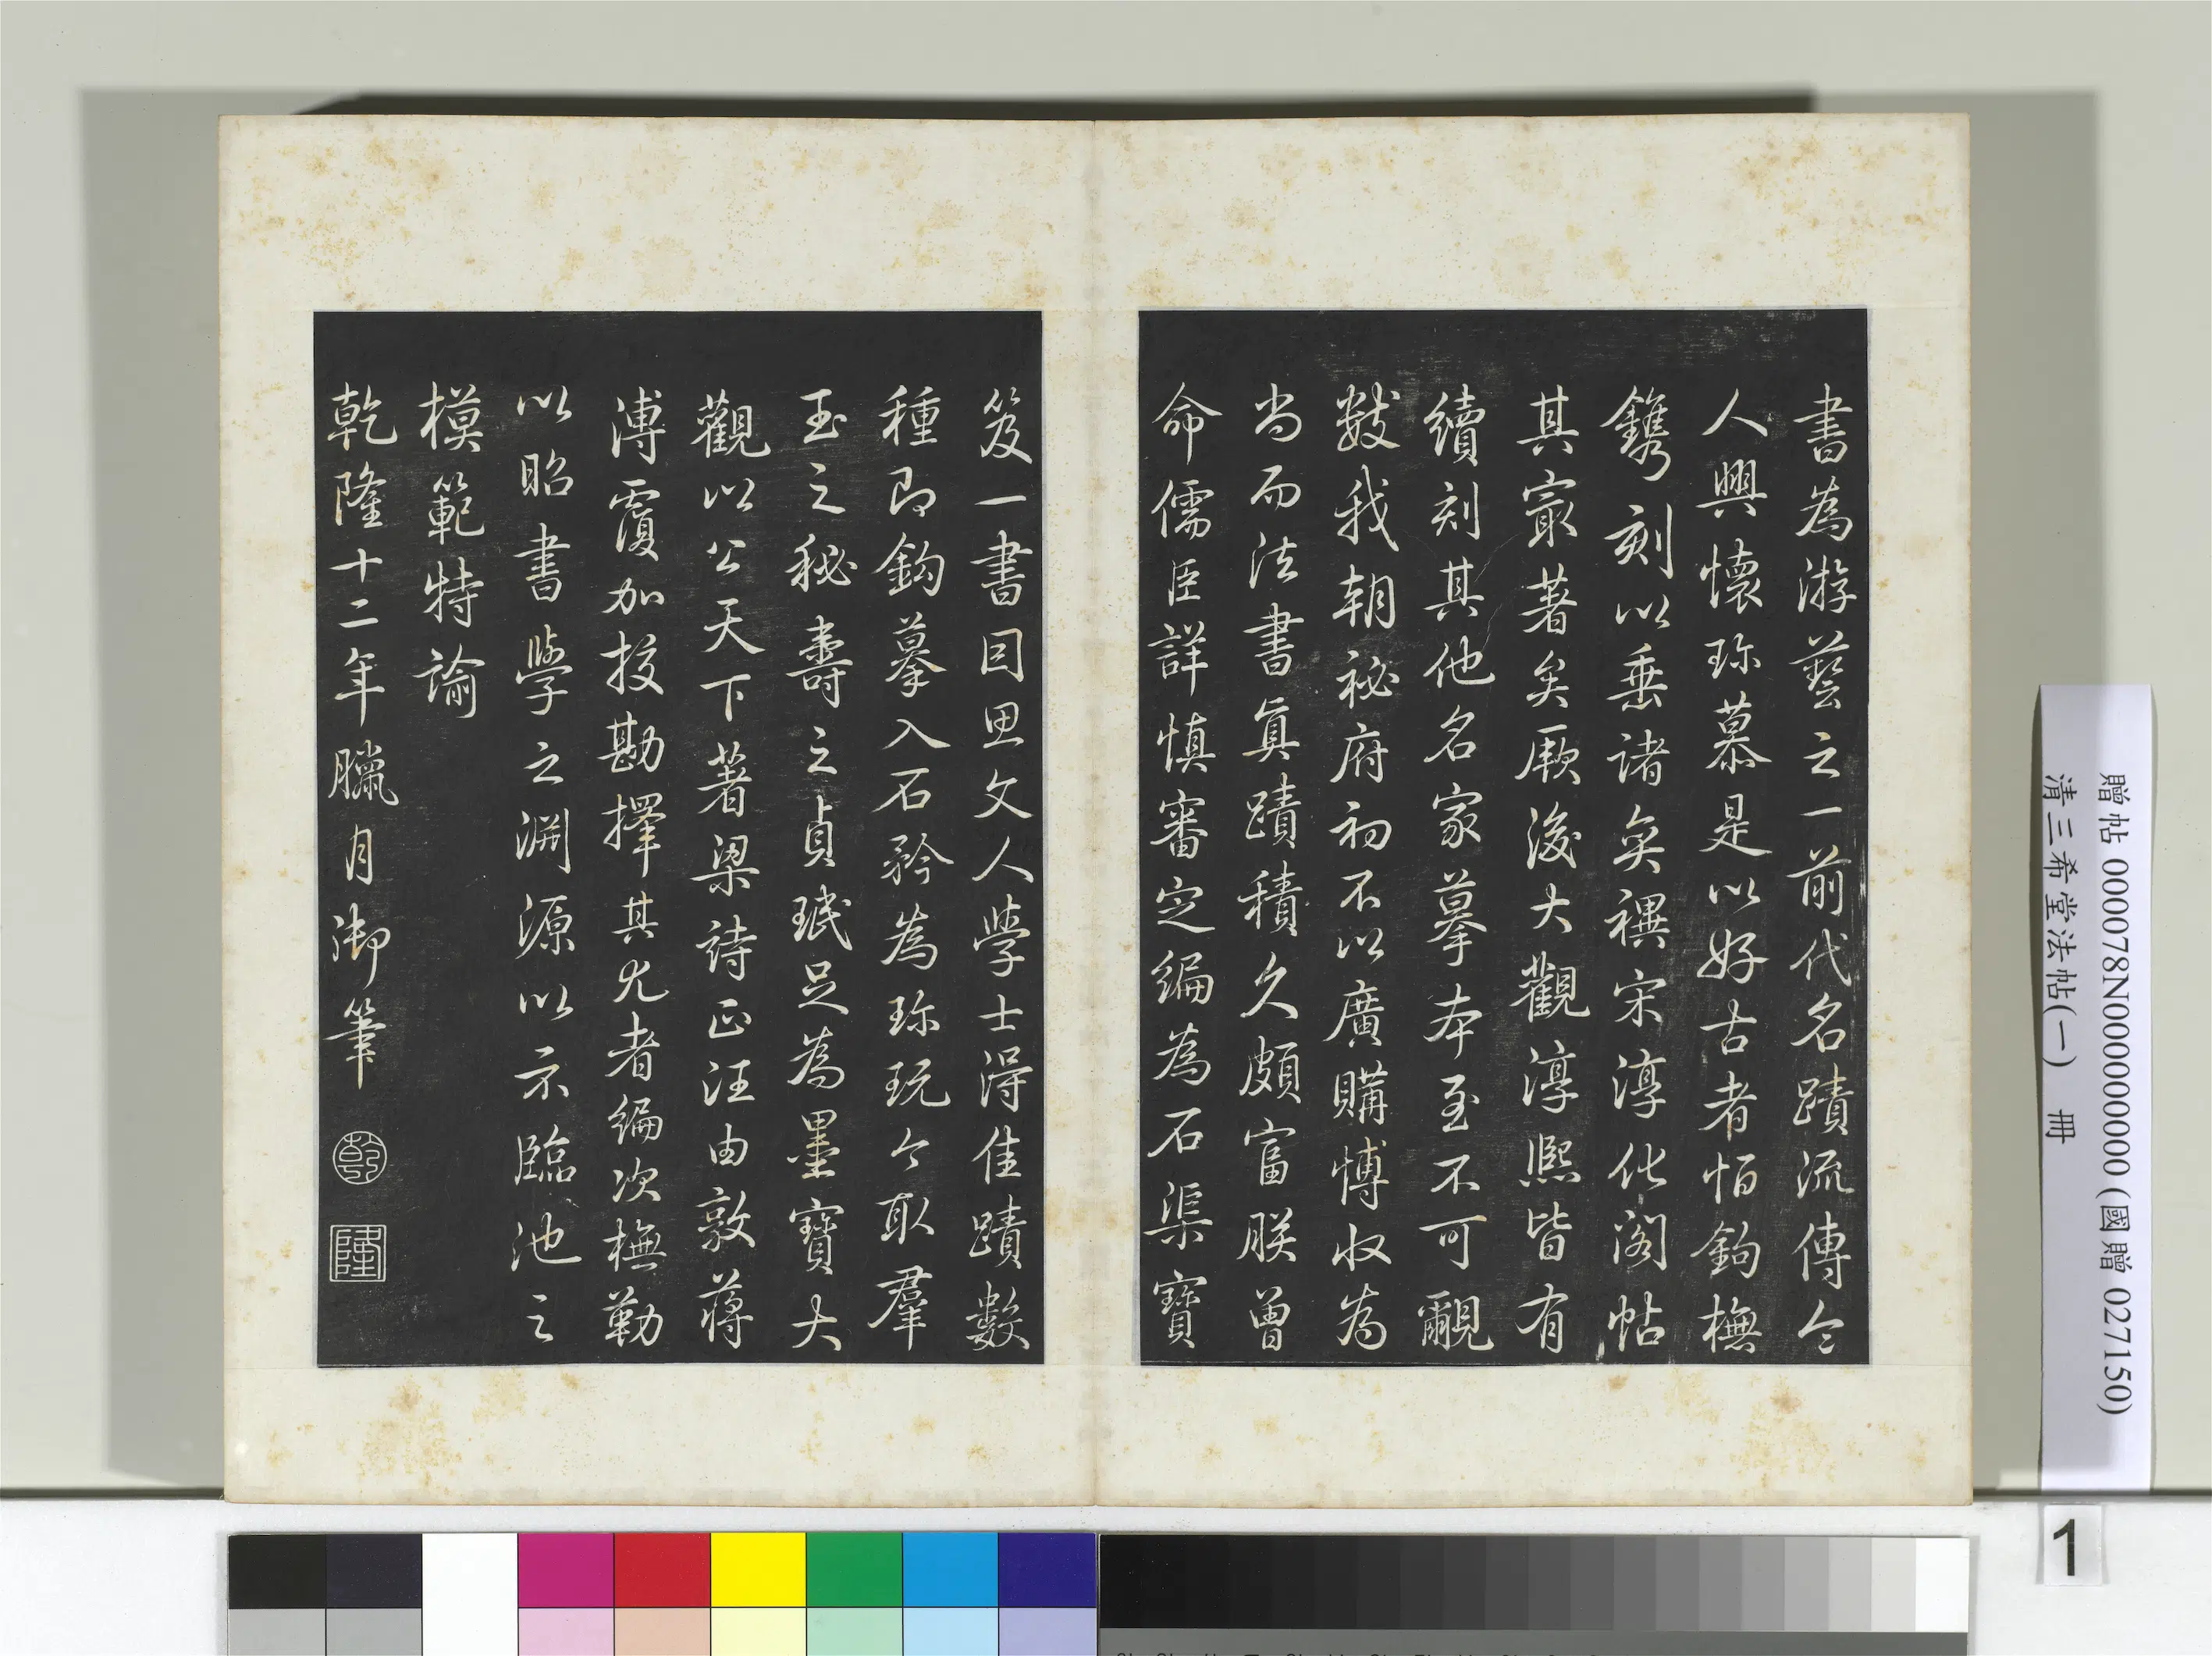 書為游藝之一前代名蹟流傳令
人興懷珎慕是以好古者恒鉤橅
鐫刻以垂諸奕禩宋淳化閣帖
其㝡著矣厥後大觀淳熙皆有
續刻其他名家摹本至不可覼
數我朝祕府初不以廣購愽收為
尚而法書真蹟積久頗富朕曾
命儒臣詳慎審定編為石渠寶
笈一書因思文人學士得佳蹟數
種即鉤摹入石矜為珎玩今取羣
玉之秘壽之貞珉足為墨寶大
觀以公天下著梁詩正汪由敦蔣
溥覆加挍勘擇其尤者編次橅勒
以昭書學之淵源以示臨池之
模範特諭
乾隆十二年臘月御筆
乾
隆
贈帖 000078N000000000 (國贈 027150)
清三希堂法帖(一) 冊
1